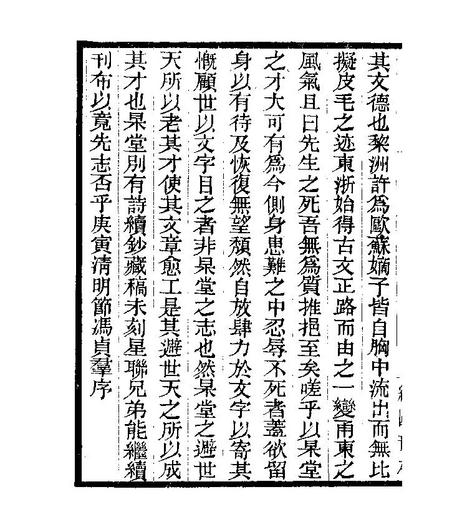 其文德也黎洲許爲歐蘇嫡子皆自胸中流出而無比
擬皮毛之迹東浙始得古文正路而由之一變甬東之
風氣且曰先生之死吾無爲質推挹至矣嗟乎以杲堂
之才大可有爲今側身患難之中忍辱不死者蓋欲留
身以有待及恢復無望頹然自放肆力於文字以寄其
慨顧世以文字目之者非杲堂之志也然杲堂之避世
天所以老其才使其文章愈工是其避世天之所以成
其才也杲堂別有詩續鈔藏稿未刻星聯兄弟能繼續
刊布以竟先志否乎庚寅清明節馮貞羣序